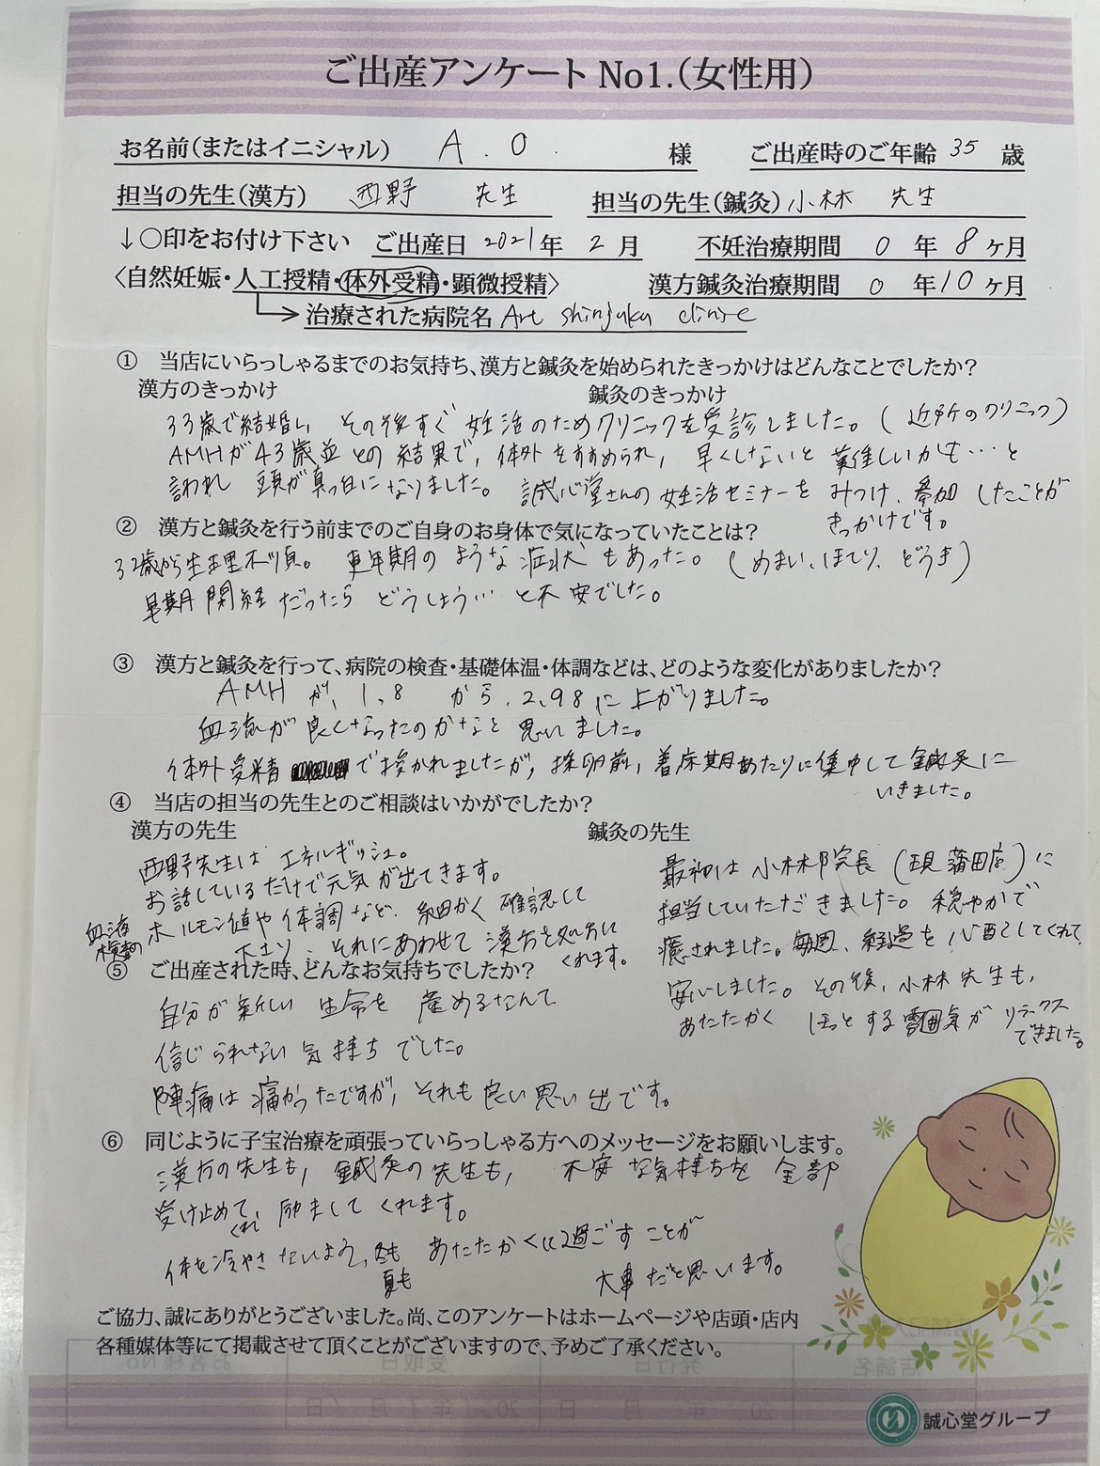 ご出産アンケート No1.(女性用)
お名前(またはイニシャル) A.O. 様 ご出産時のご年齢 35 歳
担当の先生(漢方) 西野 先生 担当の先生(鍼灸) 小林 先生
↓○印をお付け下さい ご出産日 2021年 2月 不妊治療期間 0年 8ヶ月
〈自然妊娠・人工授精・体外受精・顕微授精〉 漢方鍼灸治療期間 0年10ヶ月
治療された病院名 Art shinjuku clinic
① 当店にいらっしゃるまでのお気持ち、漢方と鍼灸を始められたきっかけはどんなことでしたか?
漢方のきっかけ 鍼灸のきっかけ
33歳で結婚し その後すぐ 妊活のためクリニックを受診しました。(近所のクリニック)
AMHが43歳並との結果で、体外をすすめられ、早くしないと難しいかも…と
言われ 頭が真っ白になりました。誠心堂さんの妊活セミナーをみつけ、参加したことが
きっかけです。
② 漢方と鍼灸を行う前までのご自身のお身体で気になっていたことは?
32歳から生理不順。更年期のような症状もあった。(めまい、ほてり、どうき)
早期閉経だったらどうしよう…と不安でした。
③ 漢方と鍼灸を行って、病院の検査・基礎体温・体調などは、どのような変化がありましたか?
AMHが、1.8から、2.98に上がりました。
血流が良くなったのかなと思いました。
体外受精で授かれましたが、採卵前、着床期あたりに集中して鍼灸に
いきました。
④ 当店の担当の先生とのご相談はいかがでしたか?
漢方の先生
西野先生はエネルギッシュ。
お話しているだけで元気が出てきます。
血液検査の
ホルモン値や体調など、細かく確認して
下さり、それにあわせて漢方を処方してくれます。
鍼灸の先生
最初は小林院長(現蒲田店)に
担当していただきました。穏やかで
癒されました。毎回、経過を心配してくれて、
安心しました。その後、小林先生も、
あたたかく ほっとする雰囲気が リラックス
できました。
⑤ ご出産された時、どんなお気持ちでしたか?
自分が新しい生命を産めるなんて
信じられない気持ちでした。
陣痛は痛かったですが、それも良い思い出です。
⑥ 同じように子宝治療を頑張っていらっしゃる方へのメッセージをお願いします。
漢方の先生も、鍼灸の先生も、不安な気持ちを全部
受け止めてくれ、励ましてくれます。
体を冷やさないよう、冬も夏も あたたかくに過ごすことが
大事だと思います。
ご協力、誠にありがとうございました。尚、このアンケートはホームページや店頭・店内
各種媒体等にて掲載させて頂くことがございますので、予めご了承ください。
誠心堂グループ